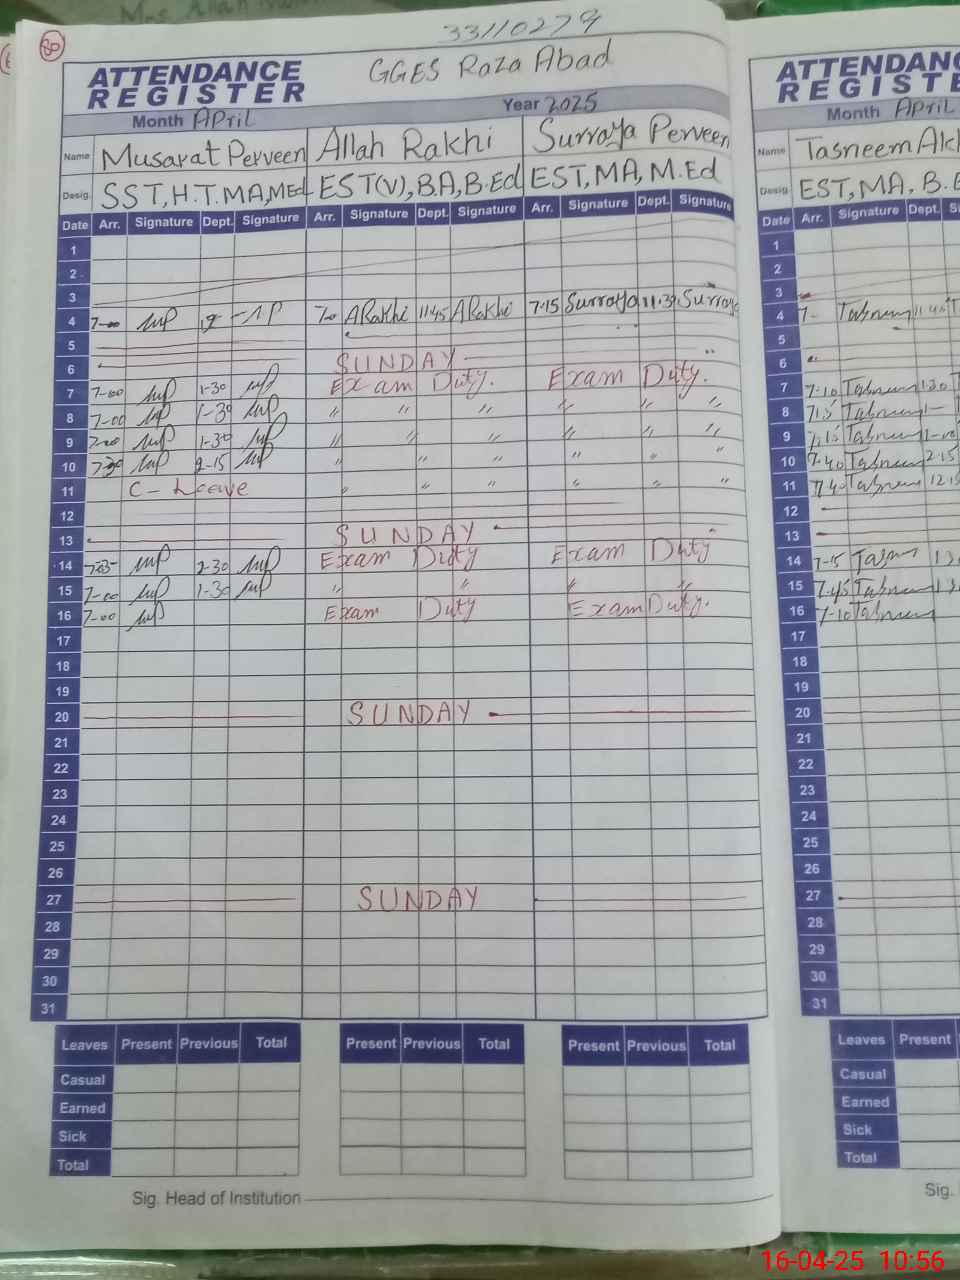 33110279
80
ATTENDANCE REGISTER
GGES Raza Abad
Month April
Year 2025
Name Musarat Perveen Allah Rakhi Surraya Perveen
Desig. SST, H.T. MA, MEd EST(V), B.A, B.Ed EST, MA, M.Ed
Date Arr. Signature Dept. Signature Arr. Signature Dept. Signature Arr. Signature Dept. Signature
1
2
3
4 7-00 7-00 ARakhi 11:45 ARakhi 7-15 Surraya 11.30 Surraya
5
6 SUNDAY
7 7-00 1-30 Exam Duty. Exam Duty.
8 7-00 1-30 " " " " " "
9 7-00 1-30 " " " " " "
10 7-30 2-15 " " " " " "
11 C-Leave " " " " " "
12
13 SUNDAY
14 2-30 Exam Duty Exam Duty
15 7-00 1-30 " " " "
16 7-00 Exam Duty Exam Duty.
17
18
19
20 SUNDAY
21
22
23
24
25
26
27 SUNDAY
28
29
30
31
Leaves Present Previous Total Present Previous Total Present Previous Total
Casual
Earned
Sick
Total
Sig. Head of Institution
ATTENDANC
REGISTE
Month April
Name Tasneem Akh
Desig. EST, MA, B.E
Date Arr. Signature Dept. S
1
2
3
4 7- Tasneem 11:45
5
6
7 7-10 Tasneem 1.30
8 Tasneem
9 7.15 Tasneem 1-00
10 7.40 Tasneem 2.15
11 7.40 Tasneem 12.15
12
13
14 7-15 Tasneem
15 7.45 Tasneem
16 7-10 Tasneem
17
18
19
20
21
22
23
24
25
26
27
28
29
30
31
Leaves Present
Casual
Earned
Sick
Total
Sig.
16-04-25 10:56